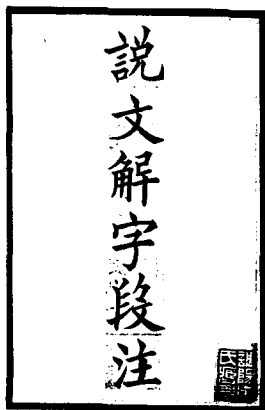 説文解字段注